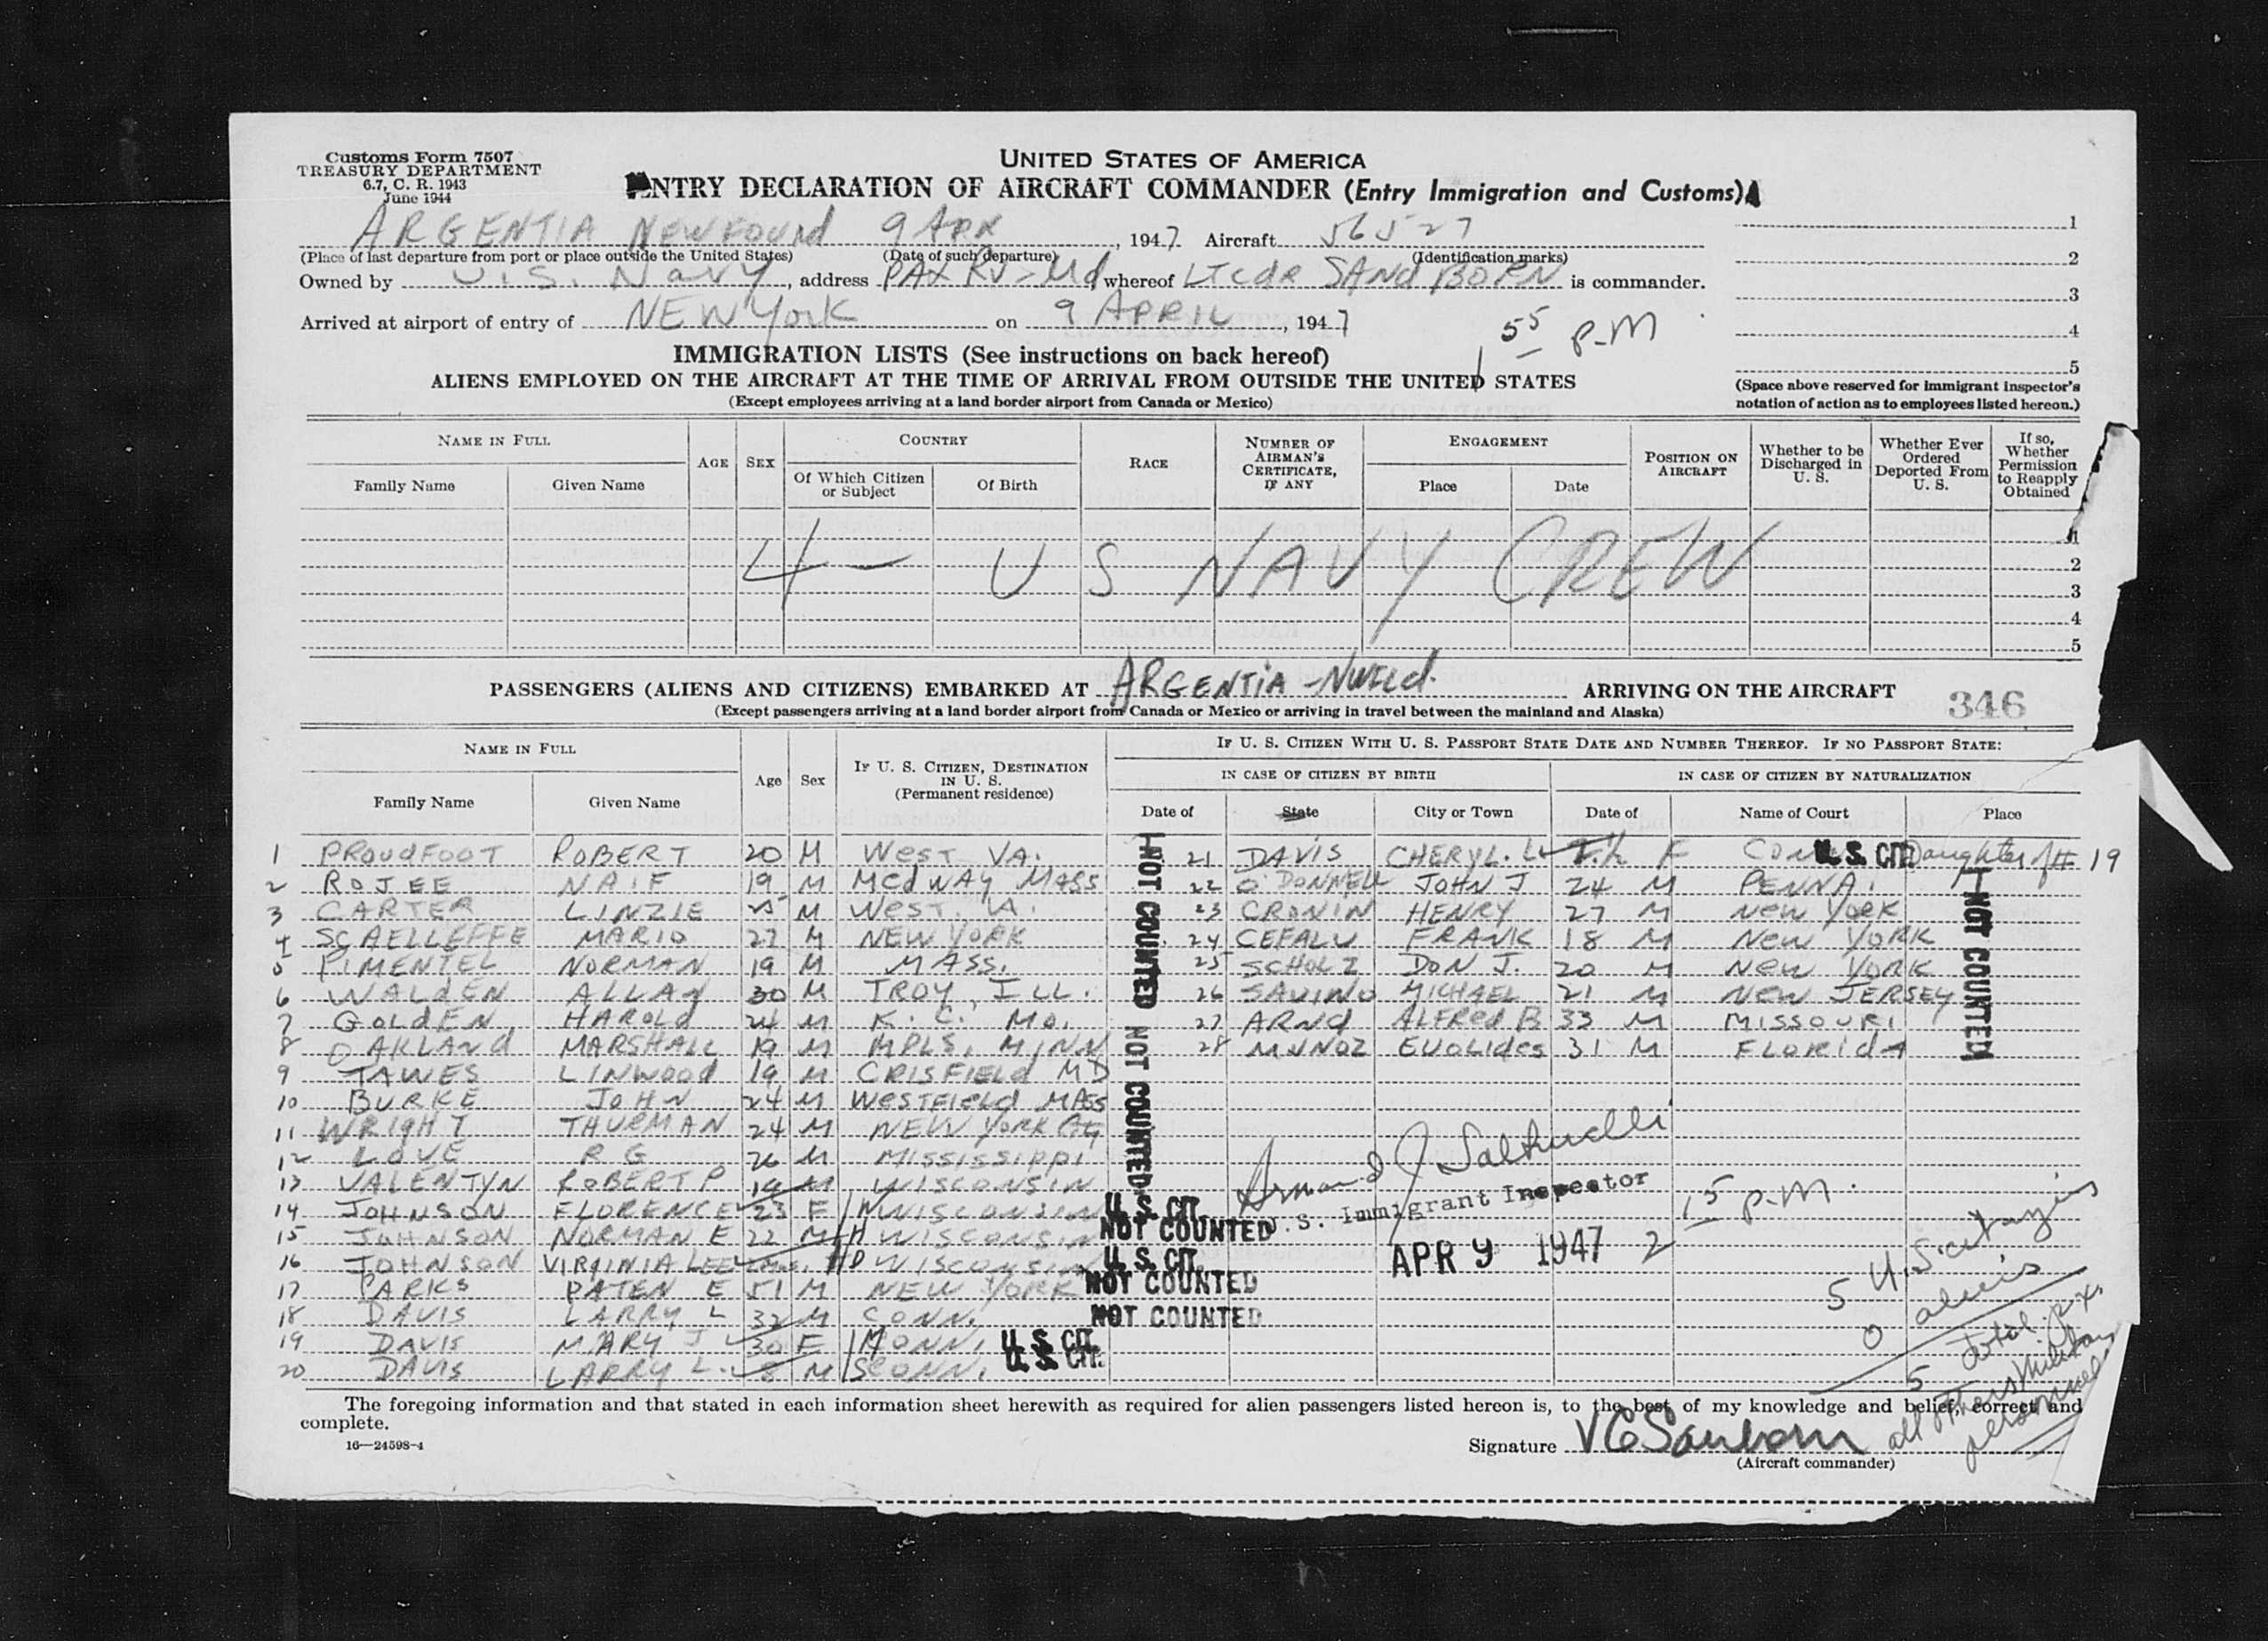 Customs Form 7507
TREASURY DEPARTMENT
6.7, C. R. 1943
June 1944
UNITED STATES OF AMERICA
ENTRY DECLARATION OF AIRCRAFT COMMANDER (Entry Immigration and Customs)
ARGENTIA NEWFOUND 9 APR, 1947 Aircraft 56527
(Place of last departure from port or place outside the United States) (Date of such departure) (Identification marks)
Owned by U.S. Navy, address PAX RV-Md, whereof LTCDR SANDBORN is commander.
Arrived at airport of entry of NEW YORK on 9 APRIL, 1947
1 55 P.M
1
2
3
4
5
(Space above reserved for immigrant inspector's
notation of action as to employees listed hereon.)
IMMIGRATION LISTS (See instructions on back hereof)
ALIENS EMPLOYED ON THE AIRCRAFT AT THE TIME OF ARRIVAL FROM OUTSIDE THE UNITED STATES
(Except employees arriving at a land border airport from Canada or Mexico)
NAME IN FULL
Family Name Given Name
AGE SEX
COUNTRY
Of Which Citizen or Subject Of Birth
RACE
NUMBER OF AIRMAN'S CERTIFICATE, IF ANY
ENGAGEMENT
Place Date
POSITION ON AIRCRAFT
Whether to be Discharged in U. S.
Whether Ever Ordered Deported From U. S.
If so, Whether Permission to Reapply Obtained
4 - U S NAVY CREW
1
2
3
4
5
PASSENGERS (ALIENS AND CITIZENS) EMBARKED AT ARGENTIA - NWFLd. ARRIVING ON THE AIRCRAFT
(Except passengers arriving at a land border airport from Canada or Mexico or arriving in travel between the mainland and Alaska)
346
NAME IN FULL
Family Name Given Name
Age Sex
IF U. S. CITIZEN, DESTINATION IN U. S. (Permanent residence)
IF U. S. CITIZEN WITH U. S. PASSPORT STATE DATE AND NUMBER THEREOF. IF NO PASSPORT STATE:
IN CASE OF CITIZEN BY BIRTH IN CASE OF CITIZEN BY NATURALIZATION
Date of State City or Town Date of Name of Court Place
1 PROUDFOOT ROBERT 20 M WEST VA.
2 ROJEE NAIF 19 M MEDWAY MASS
3 CARTER LINZIE 25 M WEST. VA.
4 SCAELLEFFE MARIO 27 M NEW YORK
5 PIMENTEL NORMAN 19 M MASS.
6 WALDEN ALLAN 30 M TROY, ILL.
7 GOLDEN HAROLD 24 M K. C. MO.
8 OAKLAND MARSHALL 19 M MPLS, MINN
9 TAWES LINWOOD 19 M CRISFIELD MD
10 BURKE JOHN 24 M WESTFIELD MASS
11 WRIGHT THURMAN 24 M NEW YORK City
12 LOVE R G 26 M MISSISSIPPI
13 VALENTYN ROBERT P 19 M WISCONSIN
14 JOHNSON FLORENCE 23 F WISCONSIN U. S. CIT.
15 JOHNSON NORMAN E 22 M WISCONSIN NOT COUNTED
16 JOHNSON VIRGINIA LEE WISCONSIN U. S. CIT.
17 PARKS PATEN E 51 M NEW YORK NOT COUNTED
18 DAVIS LARRY L 32 M CONN. NOT COUNTED
19 DAVIS MARY J 30 F CONN. U. S. CIT.
20 DAVIS LARRY L. 8 M CONN. U. S. CIT.
NOT COUNTED NOT COUNTED
21 DAVIS CHERYL. L F CONN U. S. CIT. Daughter of # 19
22 O'DONNELL JOHN J 24 M PENNA.
23 CRONIN HENRY 27 M NEW YORK
24 CEFALU FRANK 18 M NEW YORK
25 SCHOLZ DON J. 20 M NEW YORK
26 SAVINO MICHAEL 21 M NEW JERSEY
27 ARND ALFRED B 33 M MISSOURI
28 MUNOZ EUOLIDES 31 M FLORIDA
NOT COUNTED
Armand J
U. S. Immigrant Inspector
APR 9 1947 2 15 P.M.
5 U.S. citizens
0 aliens
5 total px.
all others military personnel
The foregoing information and that stated in each information sheet herewith as required for alien passengers listed hereon is, to the best of my knowledge and belief, correct and
complete.
16—24598-4
Signature V C Sanborn
(Aircraft commander)